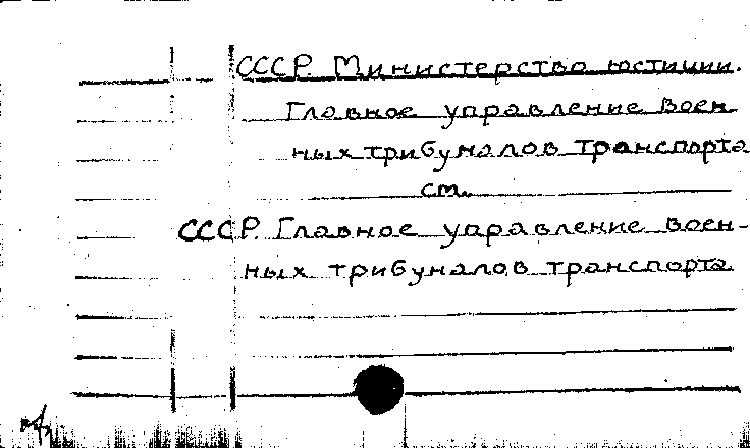 СССР. Министерство юстиции.
Главное управление воен-
ных трибуналов транспорта
см.
СССР. Главное управление воен-
ных трибуналов транспорта